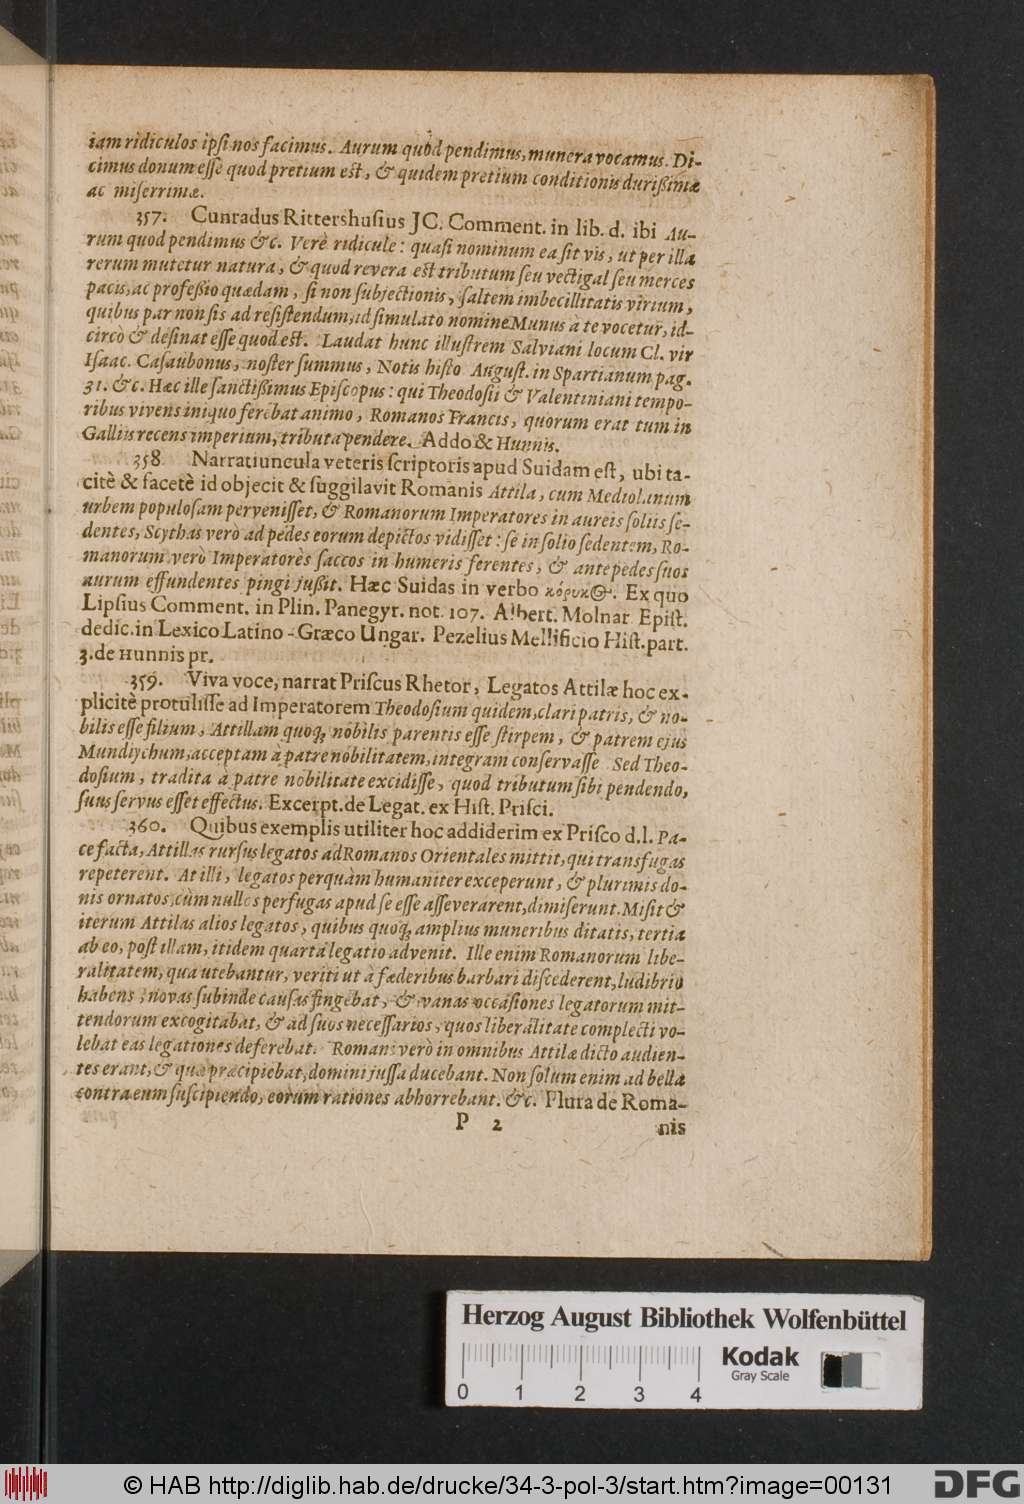 iam ridiculos ipsi nos facimus. Aurum quòd pendimus, munera vocamus. Di-
cimus donum esse quod pretium est, & quidem pretium conditionis durißimæ
ac miserrimæ.
357. Cunradus Rittershusius JC. Comment. in lib. d. ibi Au-
rum quod pendimus &c. Verè ridicule: quasi nominum ea sit vis, ut per illa
rerum mutetur natura, & quod revera est tributum seu vectigal seu merces
pacis, ac professio quædam, si non subjectionis, saltem imbecillitatis virium,
quibus par non sis ad resistendum, id simulato nomine Munus à te vocetur, id-
circò & desinat esse quod est. Laudat hunc illustrem Salviani locum Cl. vir
Isaac. Casaubonus, noster summus, Notis histo August. in Spartianum pag.
31. &c. Hæc ille sanctißimus Episcopus: qui Theodosii & Valentiniani tempo-
ribus vivens iniquo ferebat animo, Romanos Francis, quorum erat tum in
Galliis recens imperium, tributa pendere. Addo & Hunnis.
358. Narratiuncula veteris scriptoris apud Suidam est, ubi ta-
citè & facetè id objecit & suggilavit Romanis Attila, cum Mediolanum
urbem populosam pervenisset, & Romanorum Imperatores in aureis soliis se-
dentes, Scythas verò ad pedes eorum depictos vidisset: se in solio sedentem, Ro-
manorum verò Imperatores saccos in humeris ferentes, & ante pedes suos
aurum effundentes pingi jußit. Hæc Suidas in verbo κόρυκ. Ex quo
Lipsius Comment. in Plin. Panegyr. not. 107. Albert. Molnar Epist.
dedic. in Lexico Latino-Græco Ungar. Pezelius Mellificio Hist. part.
3. de Hunnis pr.
359. Viva voce, narrat Priscus Rhetor, Legatos Attilæ hoc ex-
plicitè protulisse ad Imperatorem Theodosium quidem, clari patris, & no-
bilis esse filium, Attillam quoq, nobilis parentis esse stirpem, & patrem ejus
Mundiychum, acceptam à patre nobilitatem, integram conservasse Sed Theo-
dosium, tradita à patre nobilitate excidisse, quod tributum sibi pendendo,
suus servus esset effectus. Excerpt. de Legat. ex Hist. Prisci.
360. Quibus exemplis utiliter hoc addiderim ex Prisco d.l. Pa-
ce facta, Attillas rursus legatos ad Romanos Orientales mittit, qui transfugas
repeterent. At illi, legatos perquàm humaniter exceperunt, & plurimis do-
nis ornatos, cùm nullos perfugas apud se esse asseverarent, dimiserunt. Misit &
iterum Attilas alios legatos, quibus quoq, amplius muneribus ditatis, tertia
ab eo, post illam, itidem quarta legatio advenit. Ille enim Romanorum libe-
ralitatem, qua utebantur, veriti ut à fæderibus barbari discederent, ludibrio
habens, novas subinde causas fingebat, & vanas occasiones legatorum mit-
tendorum excogitabat, & ad suos necessarios, quos liberalitate complecti vo-
lebat eas legationes deferebat. Romani verò in omnibus Attilæ dicto audien-
tes erant, & quæ præcipiebat, domini jussa ducebant. Non solum enim ad bella
contra eum suscipiendo, eorum rationes abhorrebant. &c. Plura de Roma-
P 2
nis
Herzog August Bibliothek Wolfenbüttel
Kodak
Gray Scale
0 1 2 3 4
© HAB http://diglib.hab.de/drucke/34-3-pol-3/start.htm?image=00131
DFG